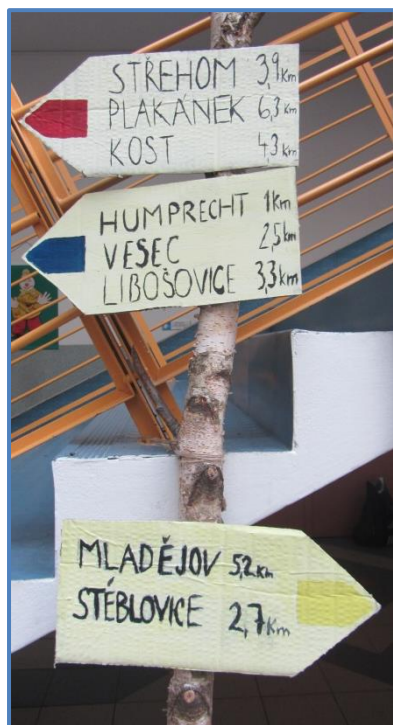 STŘEHOM 3,9 Km
PLAKÁNEK 6,3 Km
KOST 4,3 Km
HUMPRECHT 1 Km
VESEC 2,5 km
LIBOŠOVICE 3,3 Km
MLADĚJOV 5,2 Km
STÉBLOVICE 2,7 Km